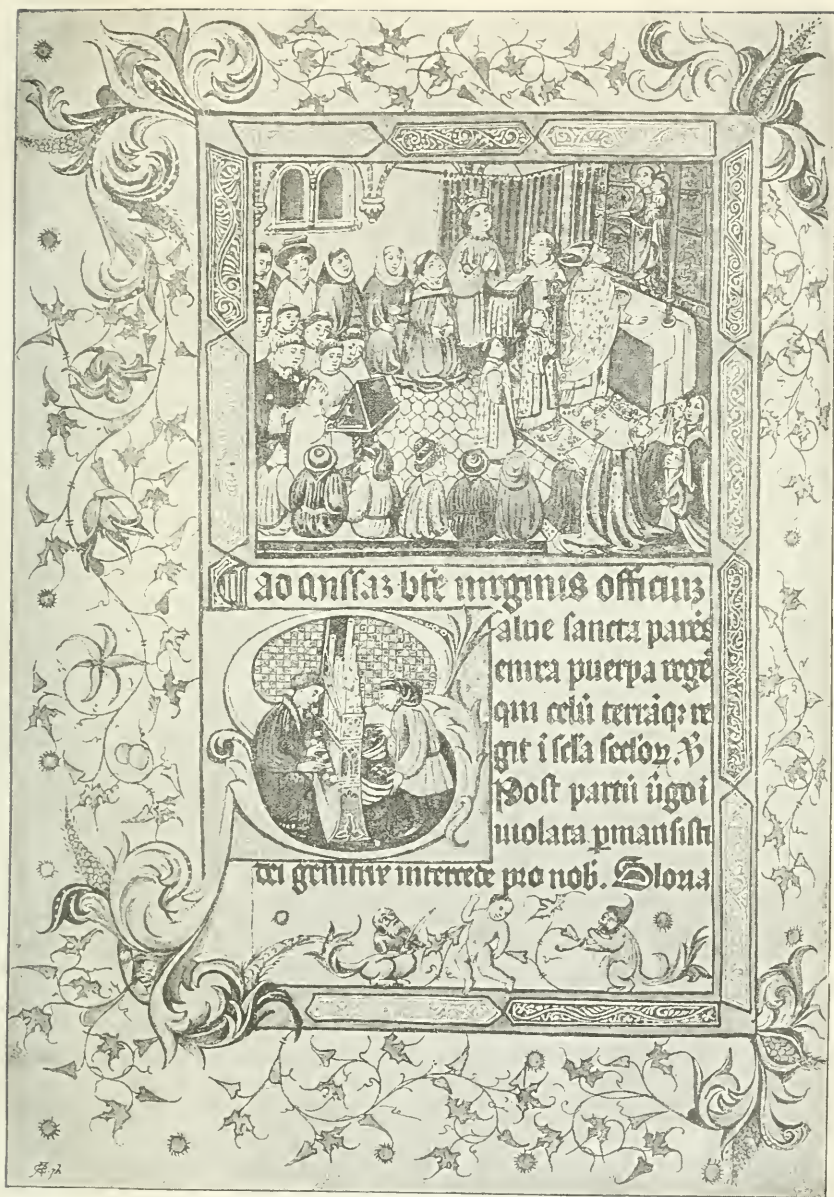 ad missaz bte virginis officiuz
Salve sancta parēs
enixa puerpa regē
qui celū terrāq; re
git i scła scłoꝝ. ℣
Post partū v̄go i
uiolata ꝑmansisti
dei genitrix intercede pro nob̄. Gloria